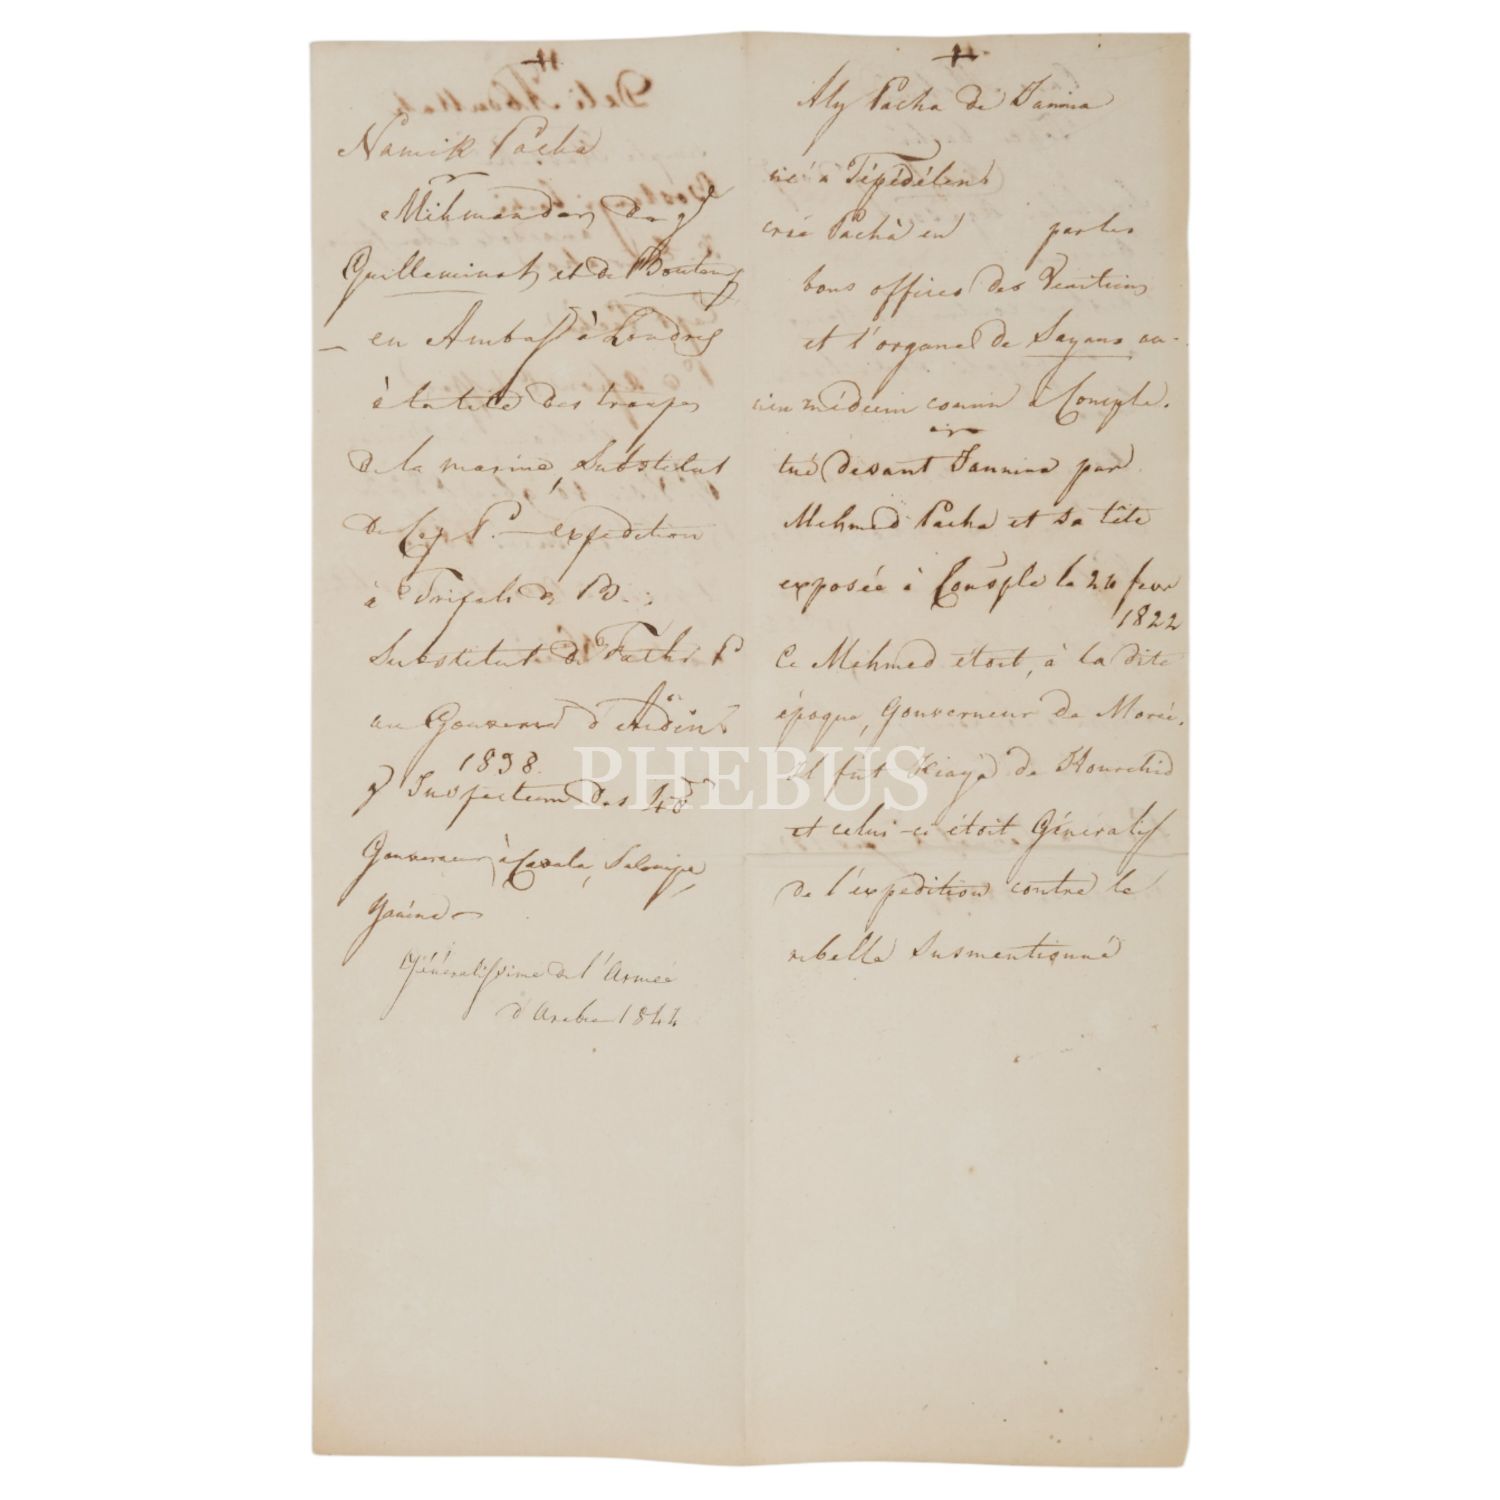 Namik Pacha
Mihmandar de gl
Guilleminot et de Bouteng
en Ambass à Londres
à la tête des troupes
de la marine, Substitut
de P. — expedition
à Tripoli de B.
Substitut de Fethi P
au Gouvern d'Aïdin
1838
Inspecteur des
Gouverneur à Cavala, Salonique,
Yanina
Généralissime de l'Armée
d'Arabie 1844
Aly Pacha de Jannina
né à Tépédélent
créé Pachà en par les
bons offices des Venitiens
et l'organe de Sayans an-
cien médecin connu à Conople.
tué devant Jannina par
Mehmed Pacha et sa tête
exposée à Consple le 24 fevr
1822
Ce Mehmed étoit, à la dite
époque, Gouverneur de Morée.
il fut Kiaya de Hourchid
et celui-ci étoit Généralis
de l'expedition contre le
rebelle susmentionné
PHEBUS